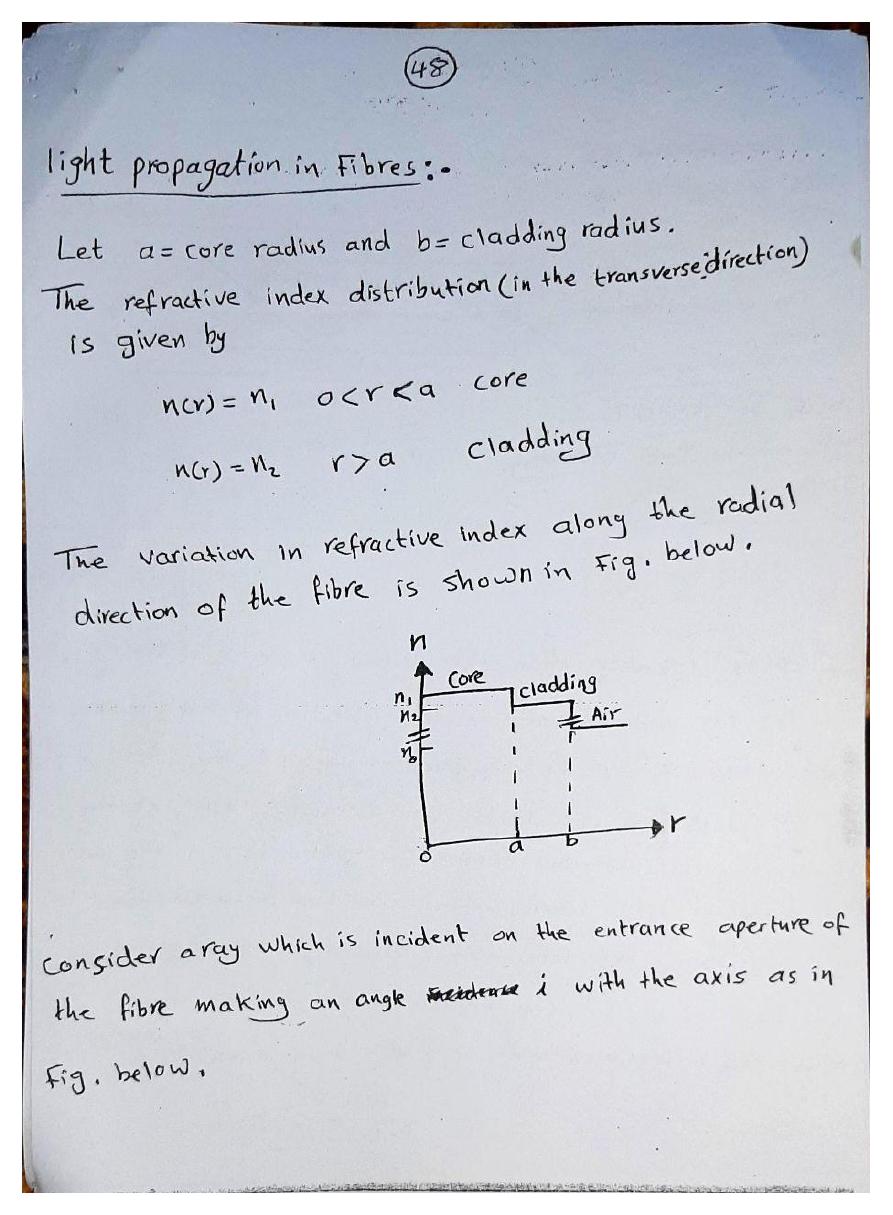 48
light propagation in Fibres :-
Let a = core radius and b = cladding radius.
The refractive index distribution (in the transverse direction)
is given by
n(r) = n₁ 0<r<a core
n(r) = n₂ r>a cladding
The variation in refractive index along the radial
direction of the fibre is shown in Fig. below.
n
Core
cladding
n₁
n₂
Air
n₀
r
0 a b
Consider a ray which is incident on the entrance aperture of
the fibre making an angle i with the axis as in
Fig. below.